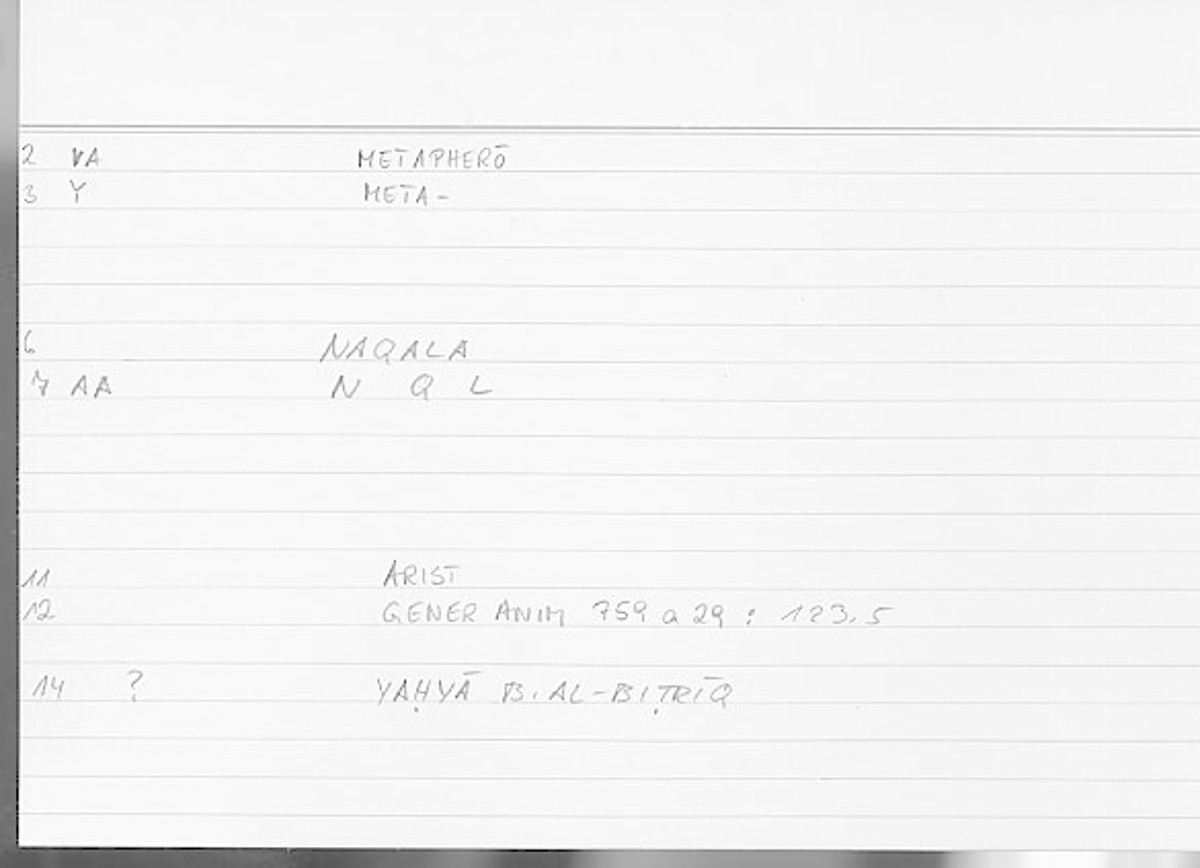 2 VA METAPHERŌ
3 Y META-
6 NAQALA
7 AA N Q L
11 ARIST
12 GENER ANIM 759 a 29 : 123.5
14 ? YAḤYĀ B. AL-BIṬRĪQ